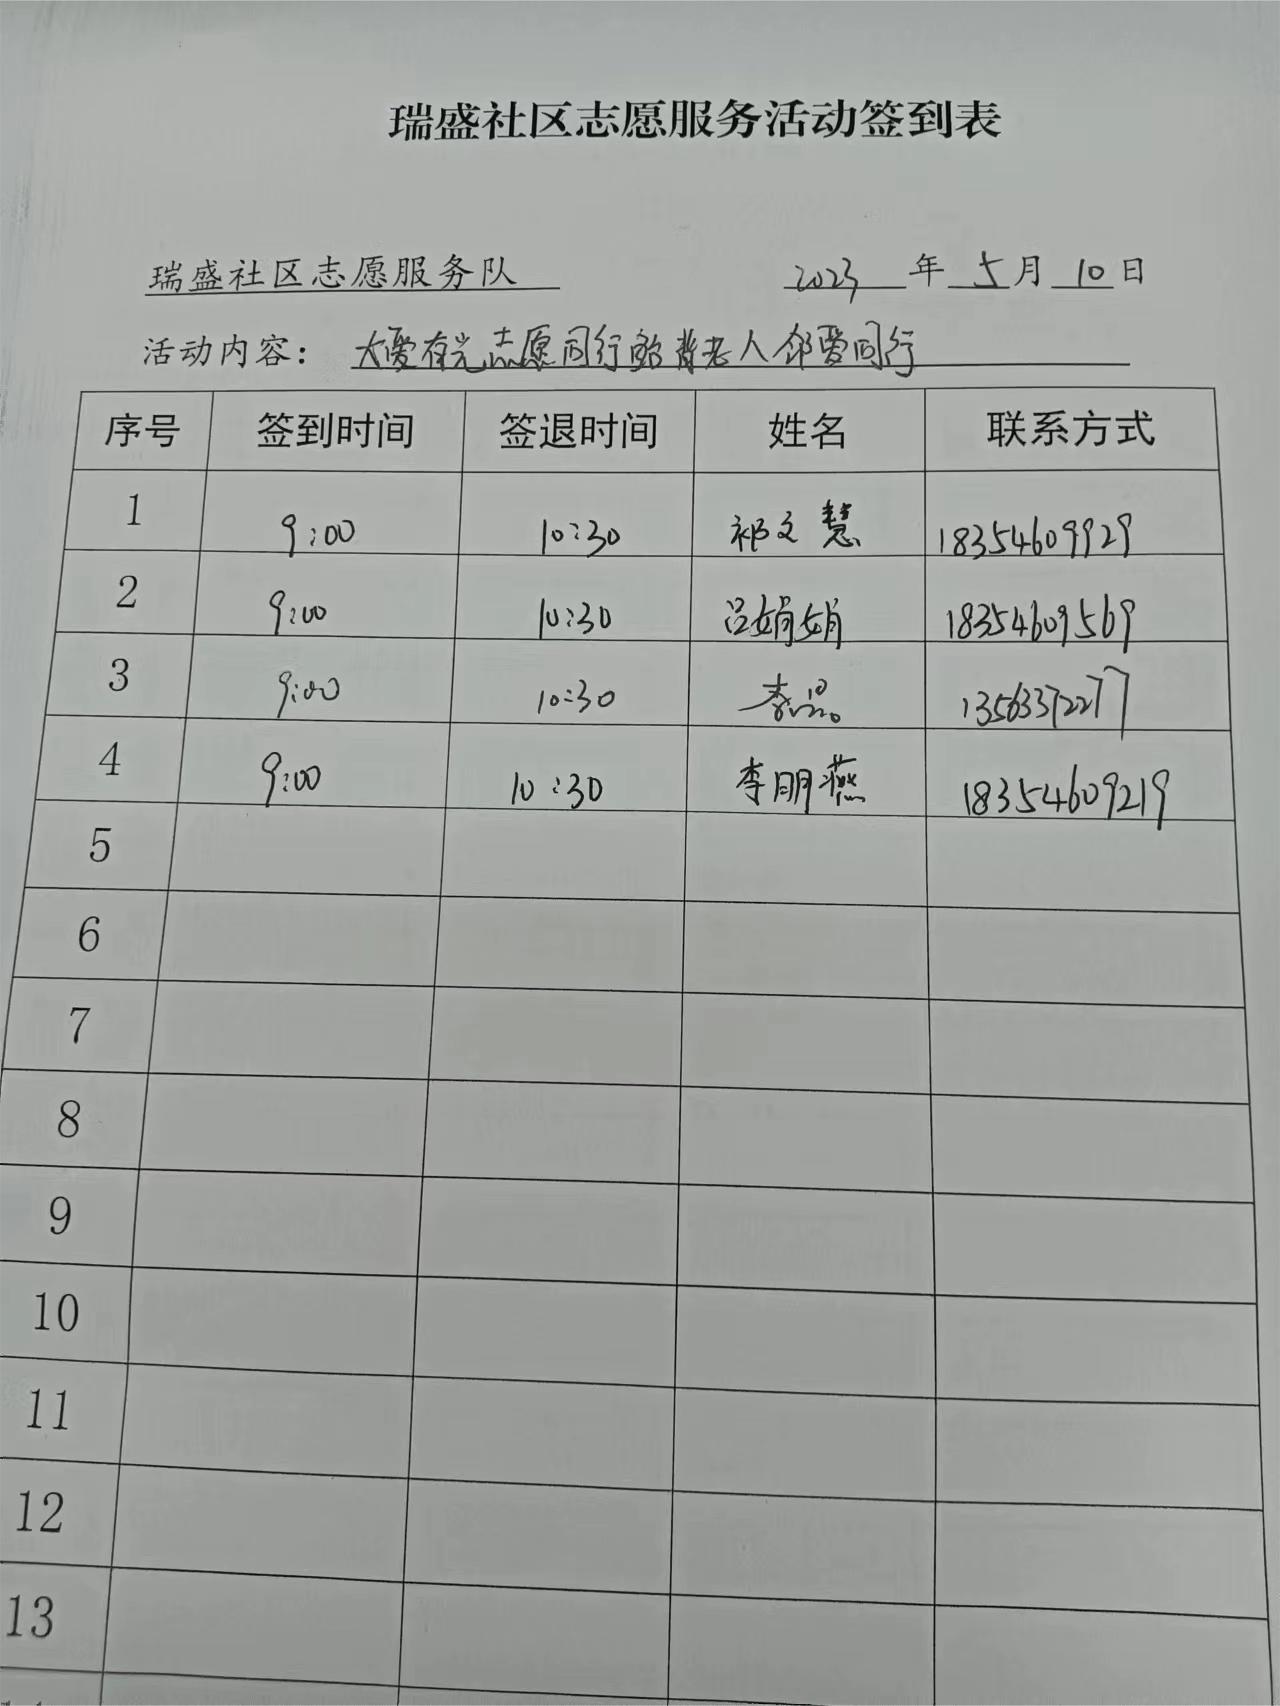 瑞盛社区志愿服务活动签到表
瑞盛社区志愿服务队 2023年5月10日
活动内容: 大爱有光志愿同行 老人邻爱同行
序号 签到时间 签退时间 姓名 联系方式
1 9:00 10:30 祁文慧 18354609929
2 9:00 10:30 吕娟娟 18354609569
3 9:00 10:30 李 13563372277
4 9:00 10:30 李朋燕 18354609219
5
6
7
8
9
10
11
12
13